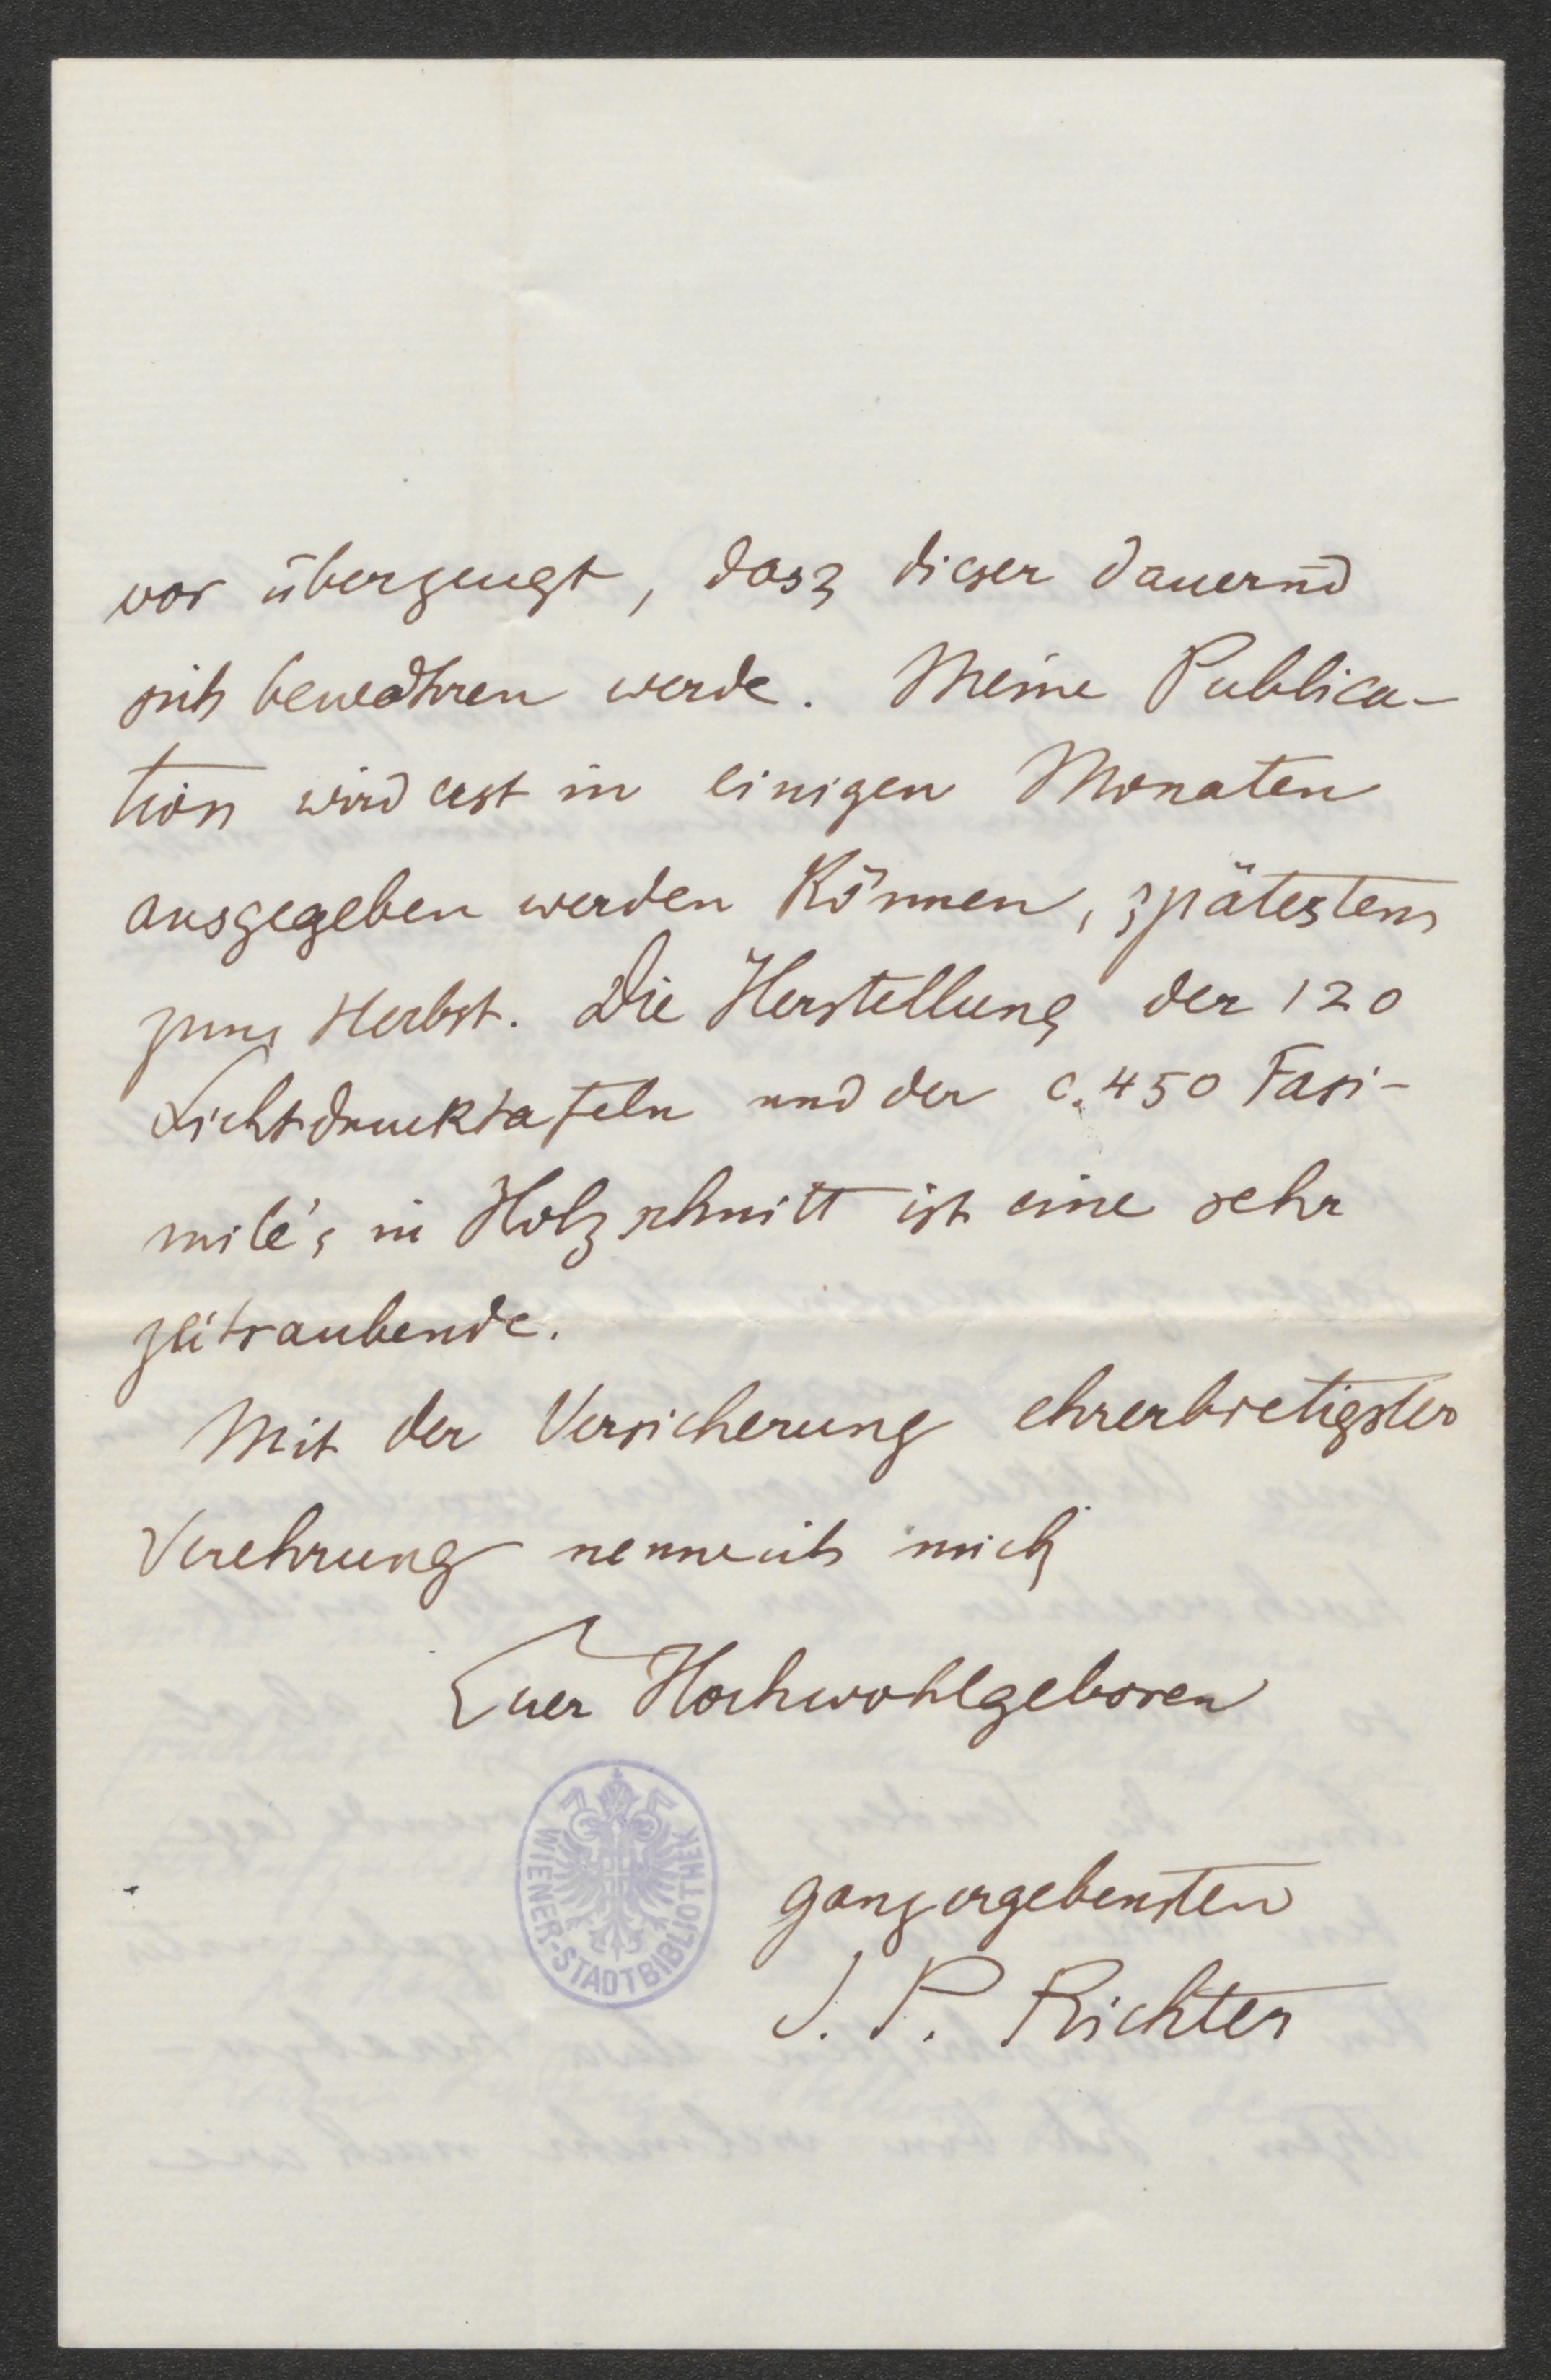 vor überzeugt, dasz dieser dauernd
sich bewahren werde. Meine Publica-
tion wird erst in einigen Monaten
ausgegeben werden können, spätestens
zum Herbst. Die Herstellung der 120
Lichtdrucktafeln und der c. 450 Fasi-
mile's in Holzschnitt ist eine sehr
zeitraubende.
Mit der Versicherung ehrerbietigster
Verehrung nenne ich mich
Euer Hochwohlgeboren
WIENER-STADTBIBLIOTHEK
ganz ergebensten
J. P. Richter